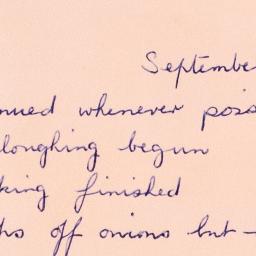 Septembe
nued whenever poss
loughing begun
king finished
off onions but -